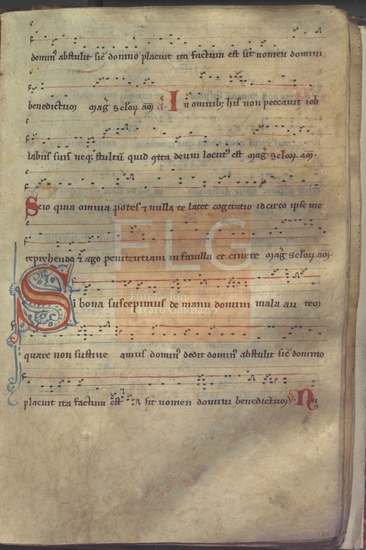 domin⁹ abstulit sic̄ domino placuit ita factum est sit nomen domini
benedictum In omnib; his non peccavit iob
labiis suis neq; stultū quid ɔtra deum locut⁹ est
Scio quia omnia potes ⁊ nulla te latet cogitatio idcirco ipse me
reprehendo ⁊ ago penitentiam in favilla et cinere
FLG
Si bona suscepimus de manu domini mala au tem
quare non sustine amus domin⁹ dedit domin⁹ abstulit sic̄ domino
placuit ita factum est sit nomen domini benedictum Nu